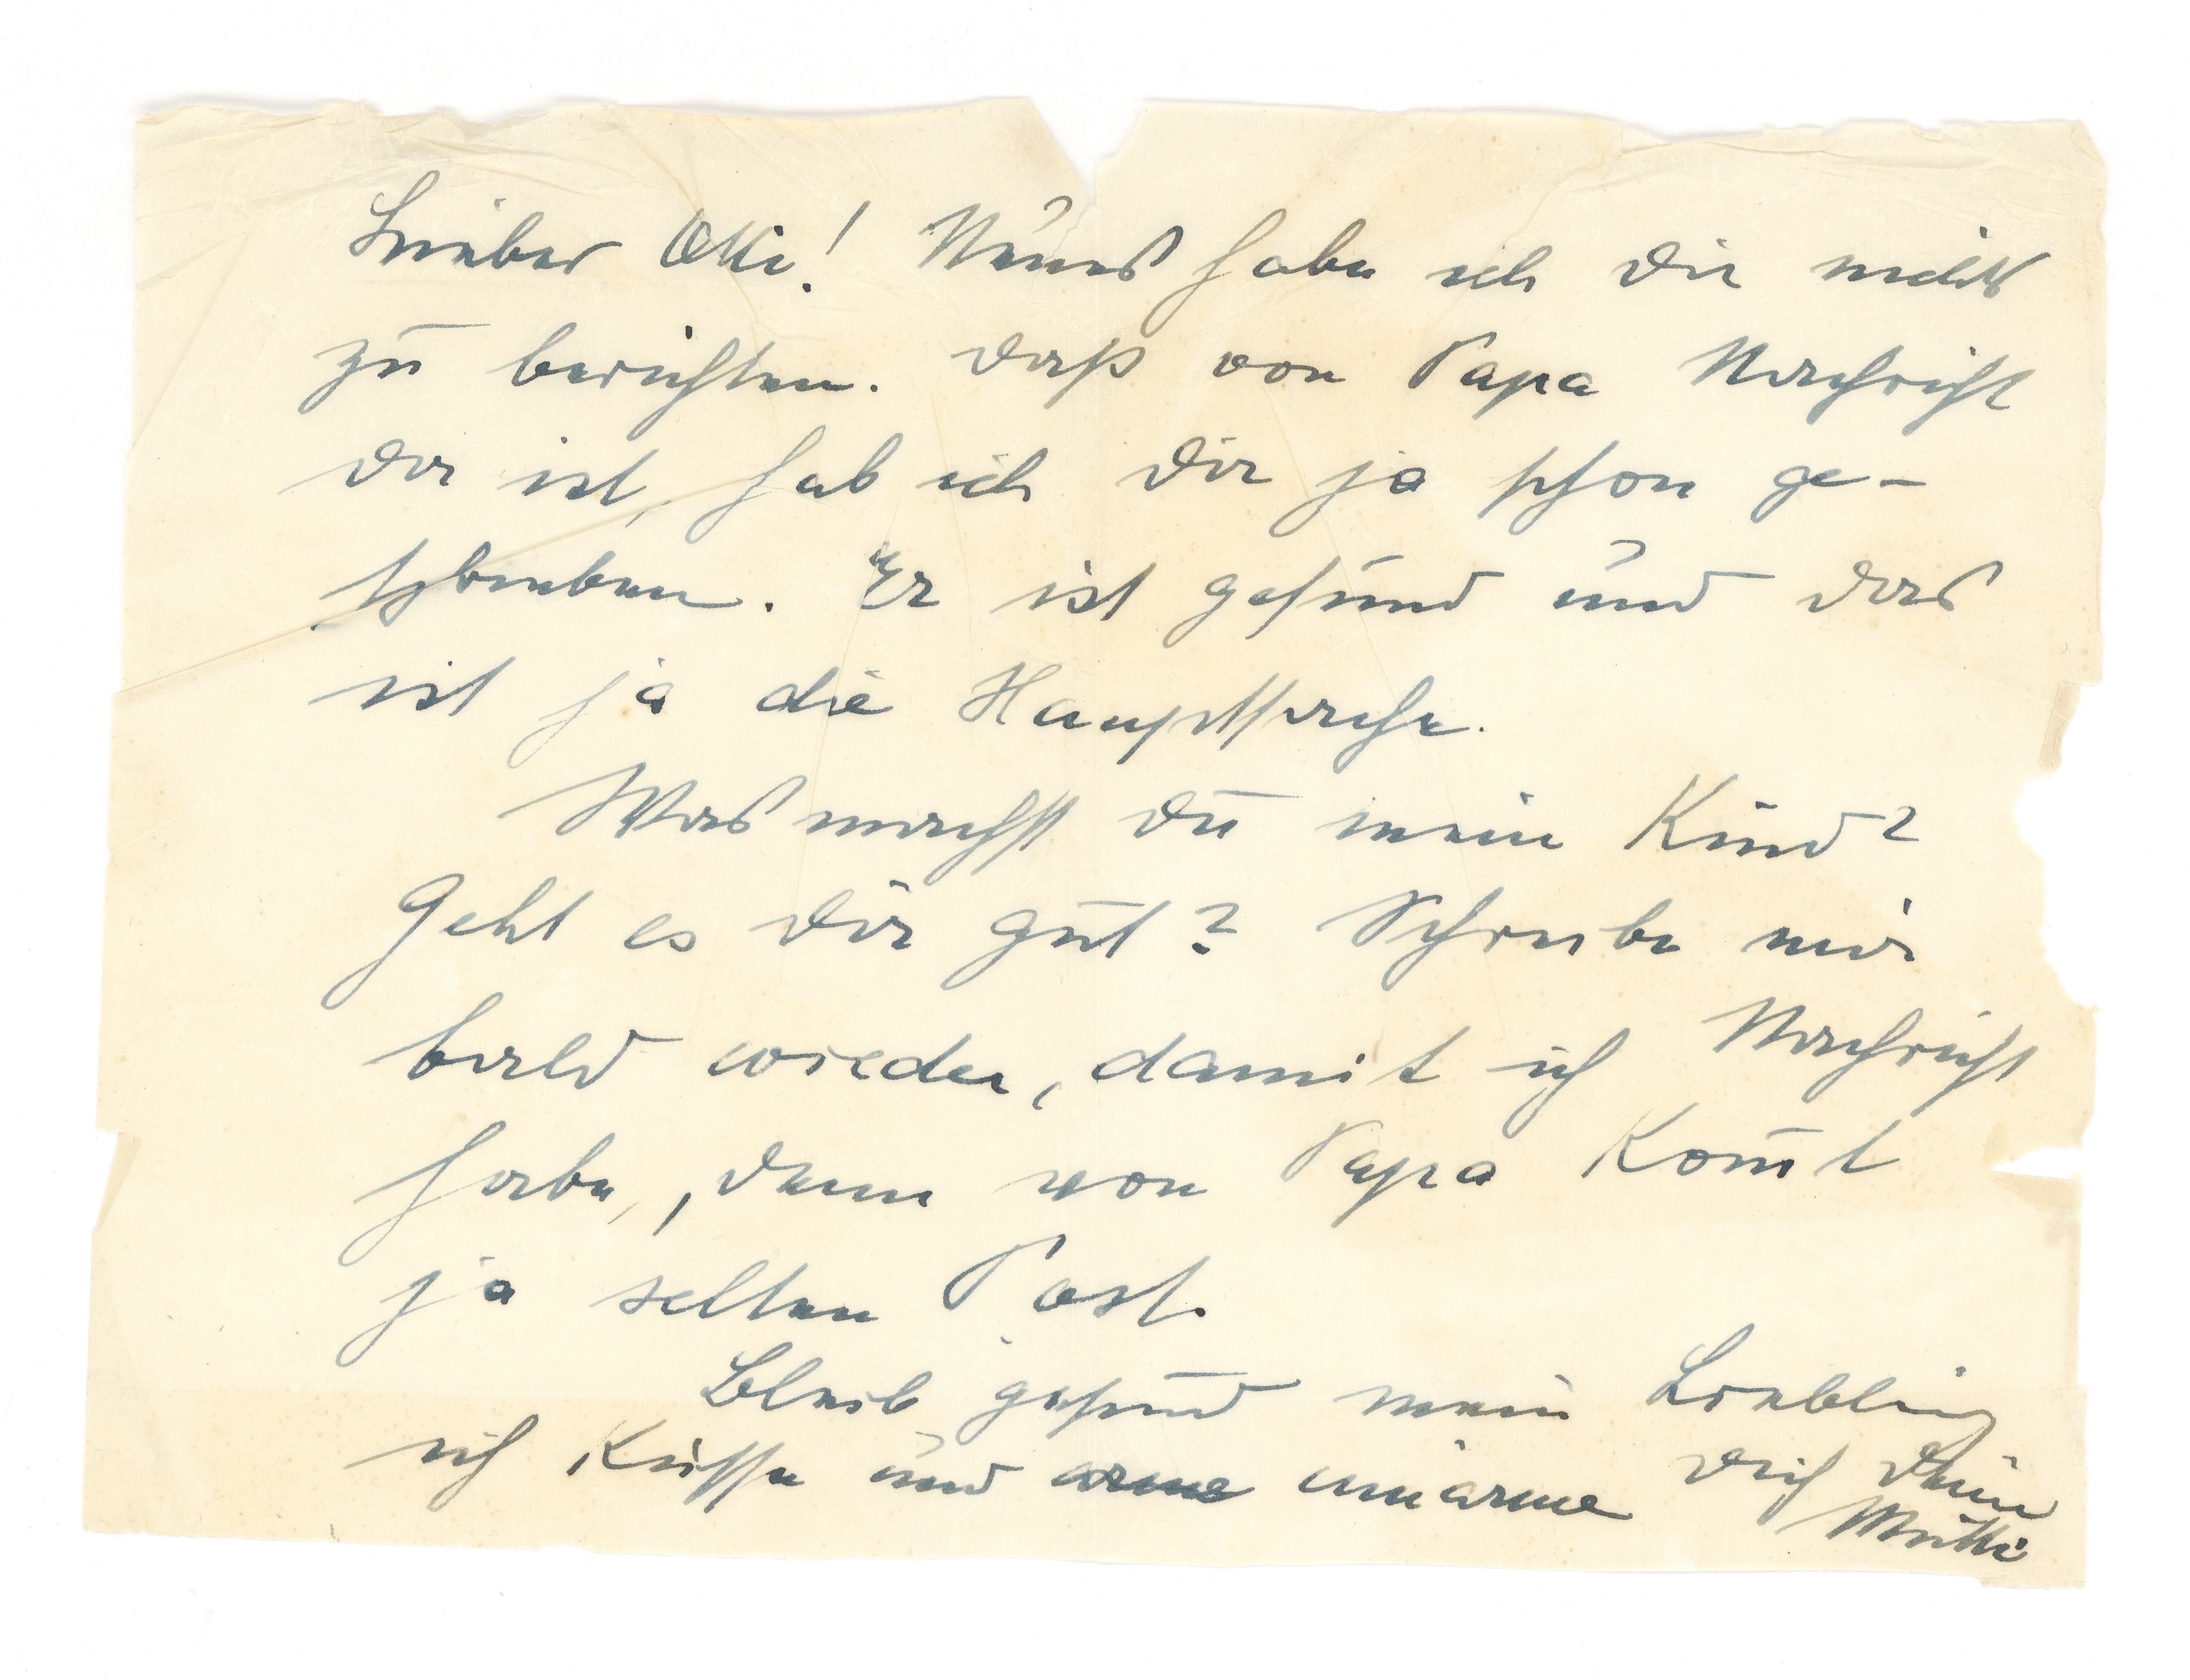 Lieber Otti! Neues habe ich Dir nicht
zu berichten. Daß von Papa Nachricht
da ist, hab ich Dir ja schon ge-
schrieben. Er ist gesund und das
ist ja die Hauptsache.
Was machst Du mein Kind?
Geht es Dir gut? Schreibe mir
bald wieder, damit ich Nachricht
habe, denn von Papa kom̄t
ja selten Post.
Bleib gesund mein Liebling
ich küsse und umarme Dich Deine
Mutti